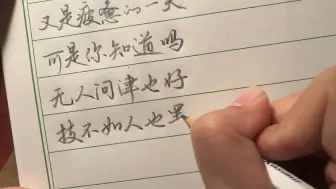 又是疲惫的一天
可是你知道吗
无人问津也好
技不如人也罢